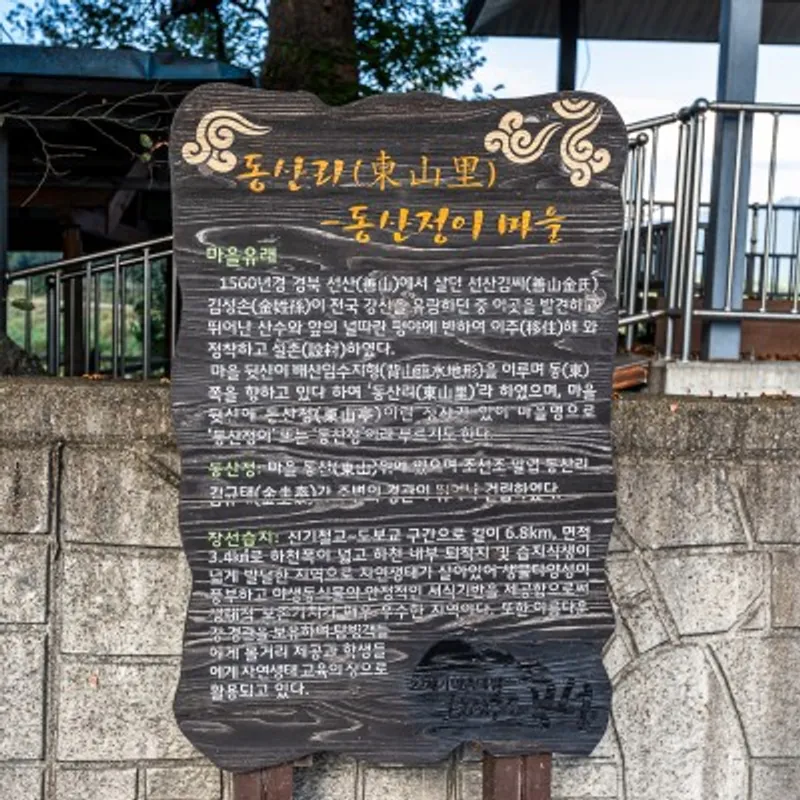 동산리(東山里)
-동산정이 마을
마을유래
1560년경 경북 선산(善山)에서 살던 선산김씨(善山金氏)
김성손(金姓孫)이 전국 강산을 유람하던 중 이곳을 발견하고
뛰어난 산수와 앞의 널따란 평야에 반하여 이주(移住)해 와
정착하고 실촌(設村)하였다.
마을 뒷산이 배산임수지형(背山臨水地形)을 이루며 동(東)
쪽을 향하고 있다 하여 '동산리(東山里)'라 하였으며, 마을
뒷산에 동산정(東山亭)이란 정자가 있어 마을명으로
'동산정이' 또는 '동산정'이라 부르기도 한다.
동산정: 마을 동산(東山)위에 있으며 조선조 말엽 동산리
김규태(金圭泰)가 주변의 경관이 뛰어나 건립하였다.
장선습지: 신기철교~도보교 구간으로 길이 6.8km, 면적
3.4㎢로 하천폭이 넓고 하천 내부 퇴적지 및 습지식생이
넓게 발달한 지역으로 자연생태가 살아있어 생물다양성이
풍부하고 야생동식물의 안정적인 서식기반을 제공함으로써
생태적 보존가치가 매우 우수한 지역이다. 또한 아름다운
장경관을 보유하여 탐방객들
에게 볼거리 제공과 학생들
에게 자연생태 교육의 장으로
활용되고 있다.